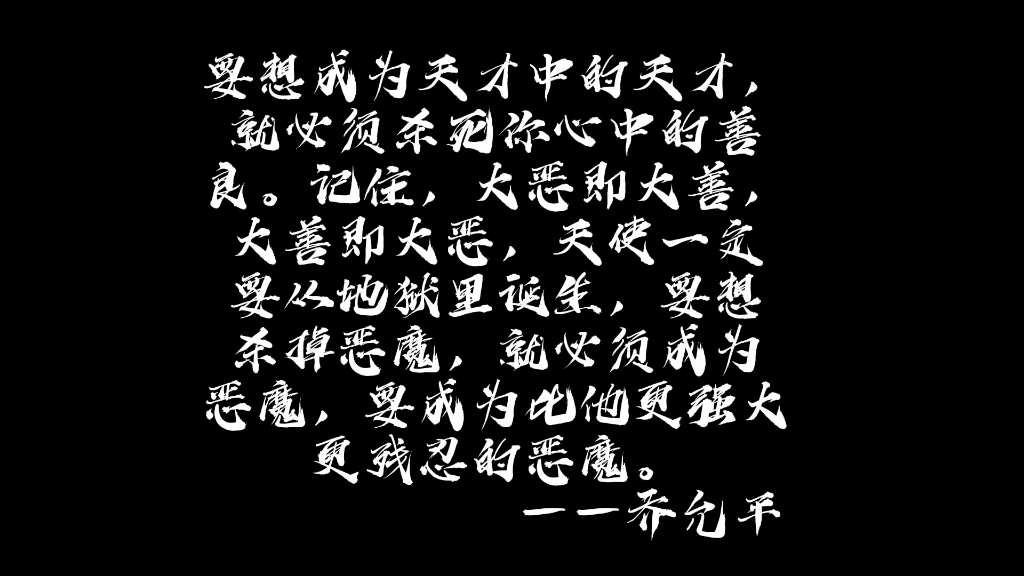 要想成为天才中的天才，
就必须杀死你心中的善
良。记住，大恶即大善，
大善即大恶，天使一定
要从地狱里诞生，要想
杀掉恶魔，就必须成为
恶魔，要成为比他更强大
更残忍的恶魔。
——乔允平